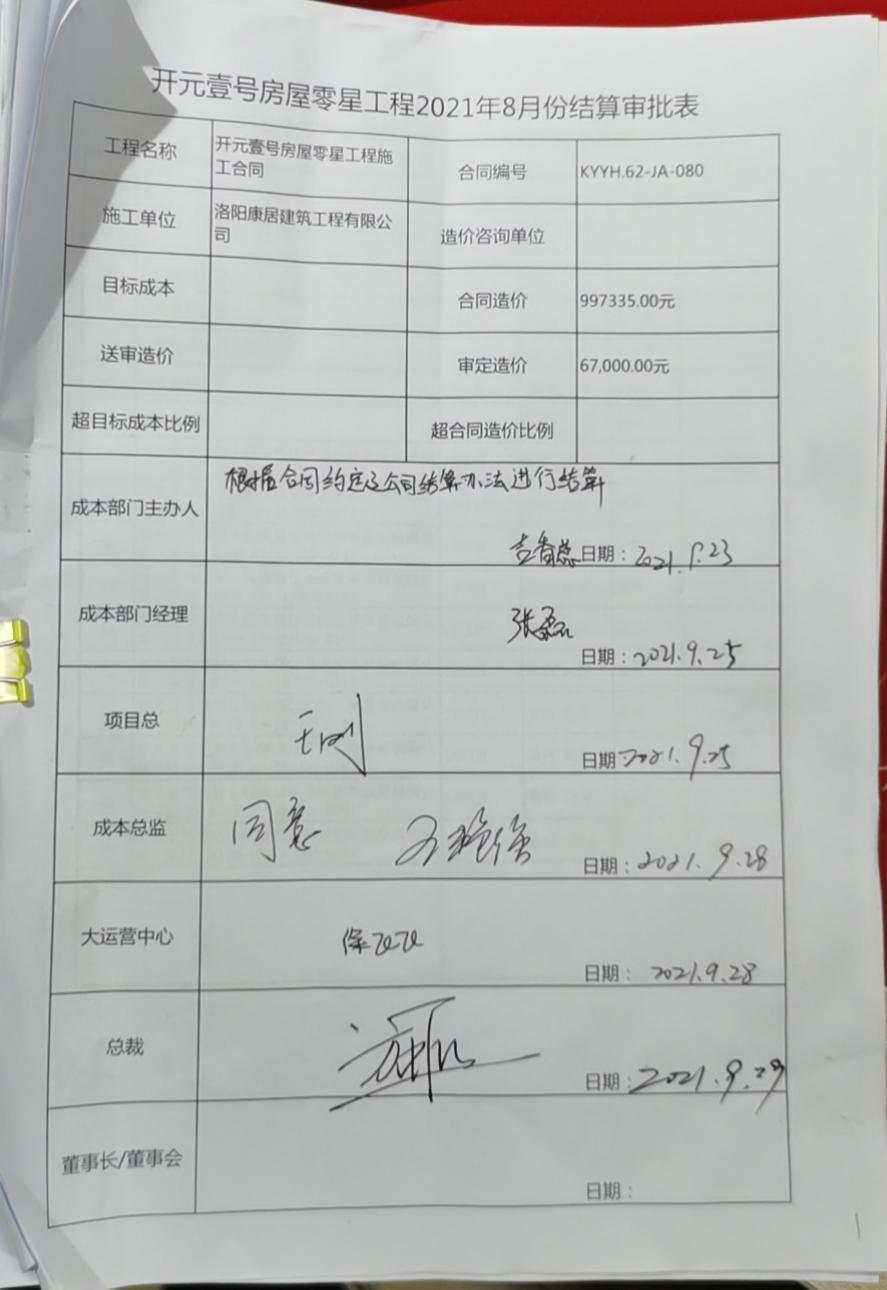 开元壹号房屋零星工程2021年8月份结算审批表
工程名称
开元壹号房屋零星工程施
工合同
合同编号
KYYH.62-JA-080
施工单位
洛阳康居建筑工程有限公
司
造价咨询单位
目标成本
合同造价
997335.00元
送审造价
审定造价
67,000.00元
超目标成本比例
超合同造价比例
成本部门主办人
根据合同约定及公司结算办法进行结算
日期：2021.9.23
成本部门经理
张磊
日期：2021.9.25
项目总
日期：2021.9.25
成本总监
同意
日期：2021.9.28
大运营中心
日期：2021.9.28
总裁
日期：2021.9.29
董事长/董事会
日期：